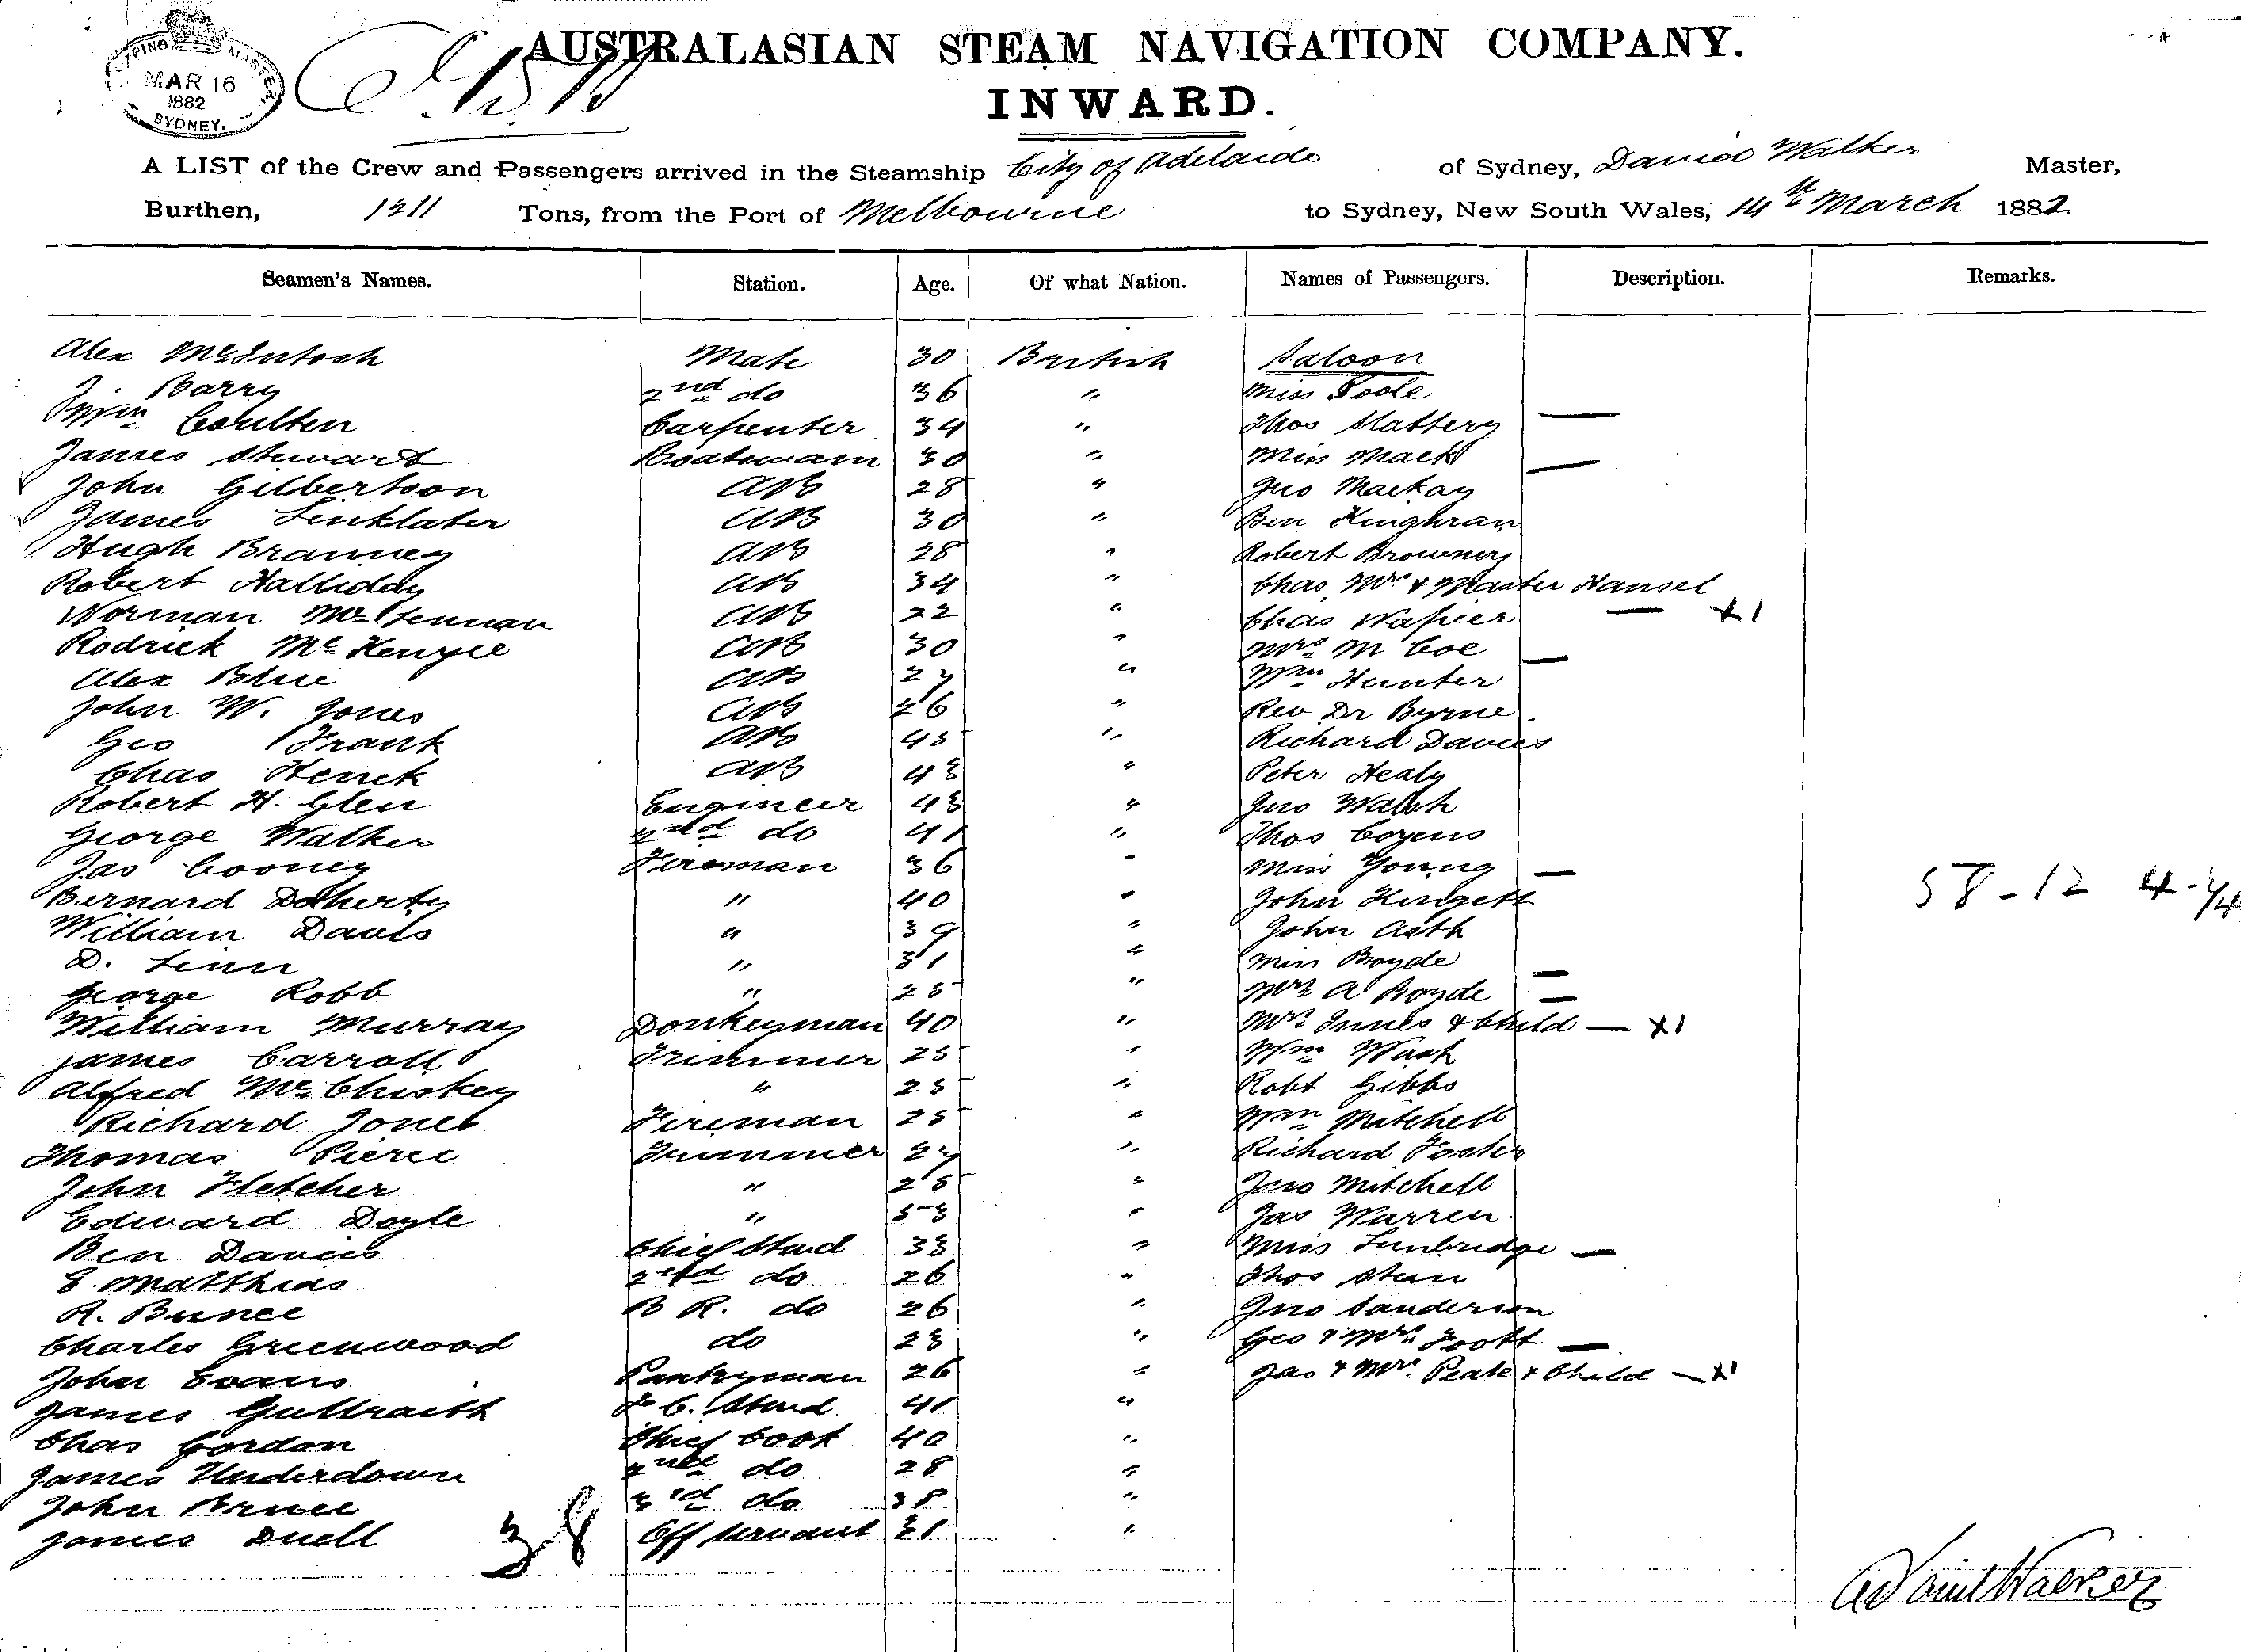 AUSTRALASIAN STEAM NAVIGATION COMPANY.
SHIPPING MASTER
MAR 16
1882
SYDNEY.
INWARD.
A LIST of the Crew and Passengers arrived in the Steamship City of Adelaide of Sydney, David Walker Master,
Burthen, 1211 Tons, from the Port of Melbourne to Sydney, New South Wales, 14th March 1882.
Seamen's Names. Station. Age. Of what Nation. Names of Passengers. Description. Remarks.
Alex McIntosh Mate 30 British Saloon
J. Barry 2nd do 36 " Miss Poole
Wm Coulten Carpenter 34 " Thos Slattery —
James Stewart Boatswain 30 " Miss Mack —
John Gilbertson AB 28 " Jno Mackay
James Linklater AB 30 " Ben
Hugh Branney AB 28 " Robert Browney
Robert Halliday AB 34 " Chas, Mrs & Master Hansel
Norman McLennan AB 22 " Chas Napier — x1
Rodrick McKenzie AB 30 " Mrs M Coe —
Alex Blue AB 27 " Wm Hunter
John W. Jones AB 26 " Rev Dr Byrne.
Geo Frank AB 45 " Richard Davies
Chas Henck AB 43 " Peter Healy
Robert H. Glen Engineer 43 " Jno Walsh
George Walker 2nd do 41 " Thos Cozens
Jas Cooney Fireman 36 " Miss Young —
58-12 4-1/4
Bernard Doherty " 40 " John Kingett
William Davis " 39 " John Aeth
D. Linn " 31 " Miss Boyde —
George Robb " 25 " Mrs A Boyde —
William Murray Donkeyman 40 " Mrs Innes & Child — x1
James Carroll Trimmer 25 " Wm Wash
Alfred McChiskey " 25 " Robt Gibbs
Richard Jones Fireman 25 " Wm Mitchell
Thomas Pierce Trimmer 27 " Richard Foster
John Fletcher " 25 " Jno Mitchell
Edward Doyle " 53 " Jas Warren
Ben Davies Chief Stwd 33 " Miss Tunbridge —
E Matthias 2nd do 26 " Thos
R. Bunce B R. do 26 " Jno Sanderson
Charles Greenwood do 23 " Geo & Mrs Foott —
John Evans Pantryman 26 " Jas & Mrs. Peate & Child — x1
James Gulbraith F C. Stwd. 41 "
Chas Gordon Chief Cook 40 "
James Underdown 2nd do 28 "
John Bruce 3rd do 38 "
James Duell Off servant 21 "
38
David Walker